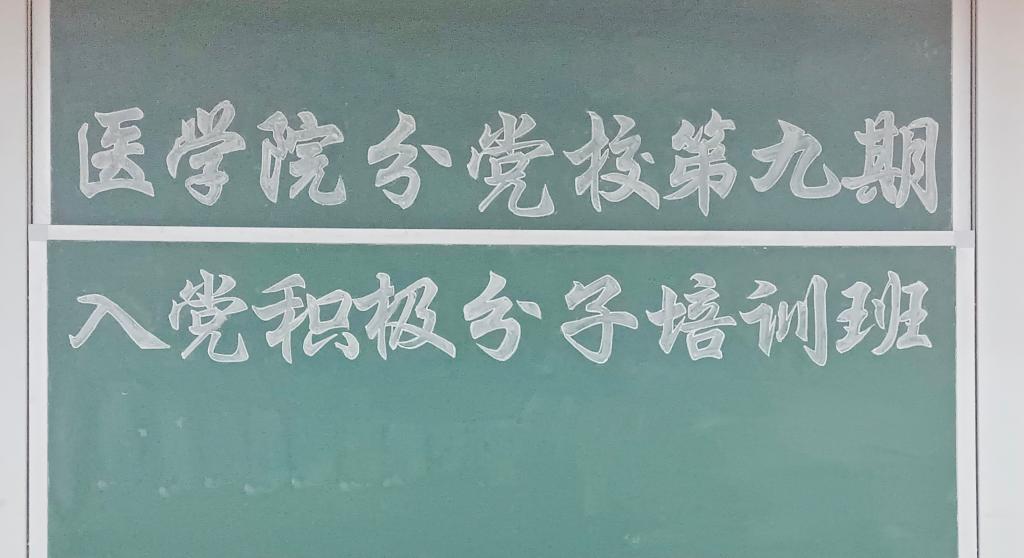 医学院分党校第九期
入党积极分子培训班